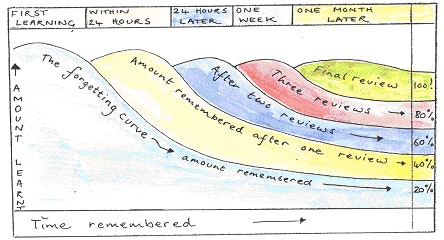 FIRST LEARNING
WITHIN 24 HOURS
24 HOURS LATER
ONE WEEK
ONE MONTH LATER
The forgetting curve → amount remembered →
Amount remembered after one review →
After two reviews →
Three reviews →
Final review
100%
80%
60%
40%
20%
AMOUNT LEARNT
Time remembered →